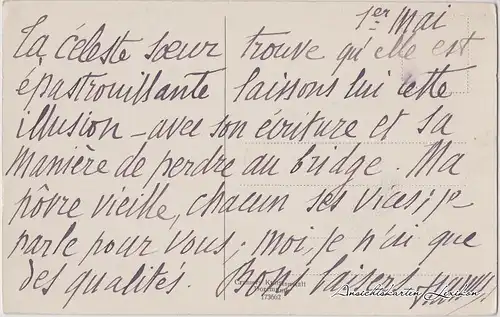 1er Mai
La céleste sœur trouve qu'elle est
épastrouillante laissons lui cette
illusion - avec son écriture et sa
manière de perdre au bridge. Ma
pôvre vieille, chacun ses vices; je
parle pour vous; moi, je n'ai que
des qualités. Bons baisers
173602
Ansichtskarten-Lexikon